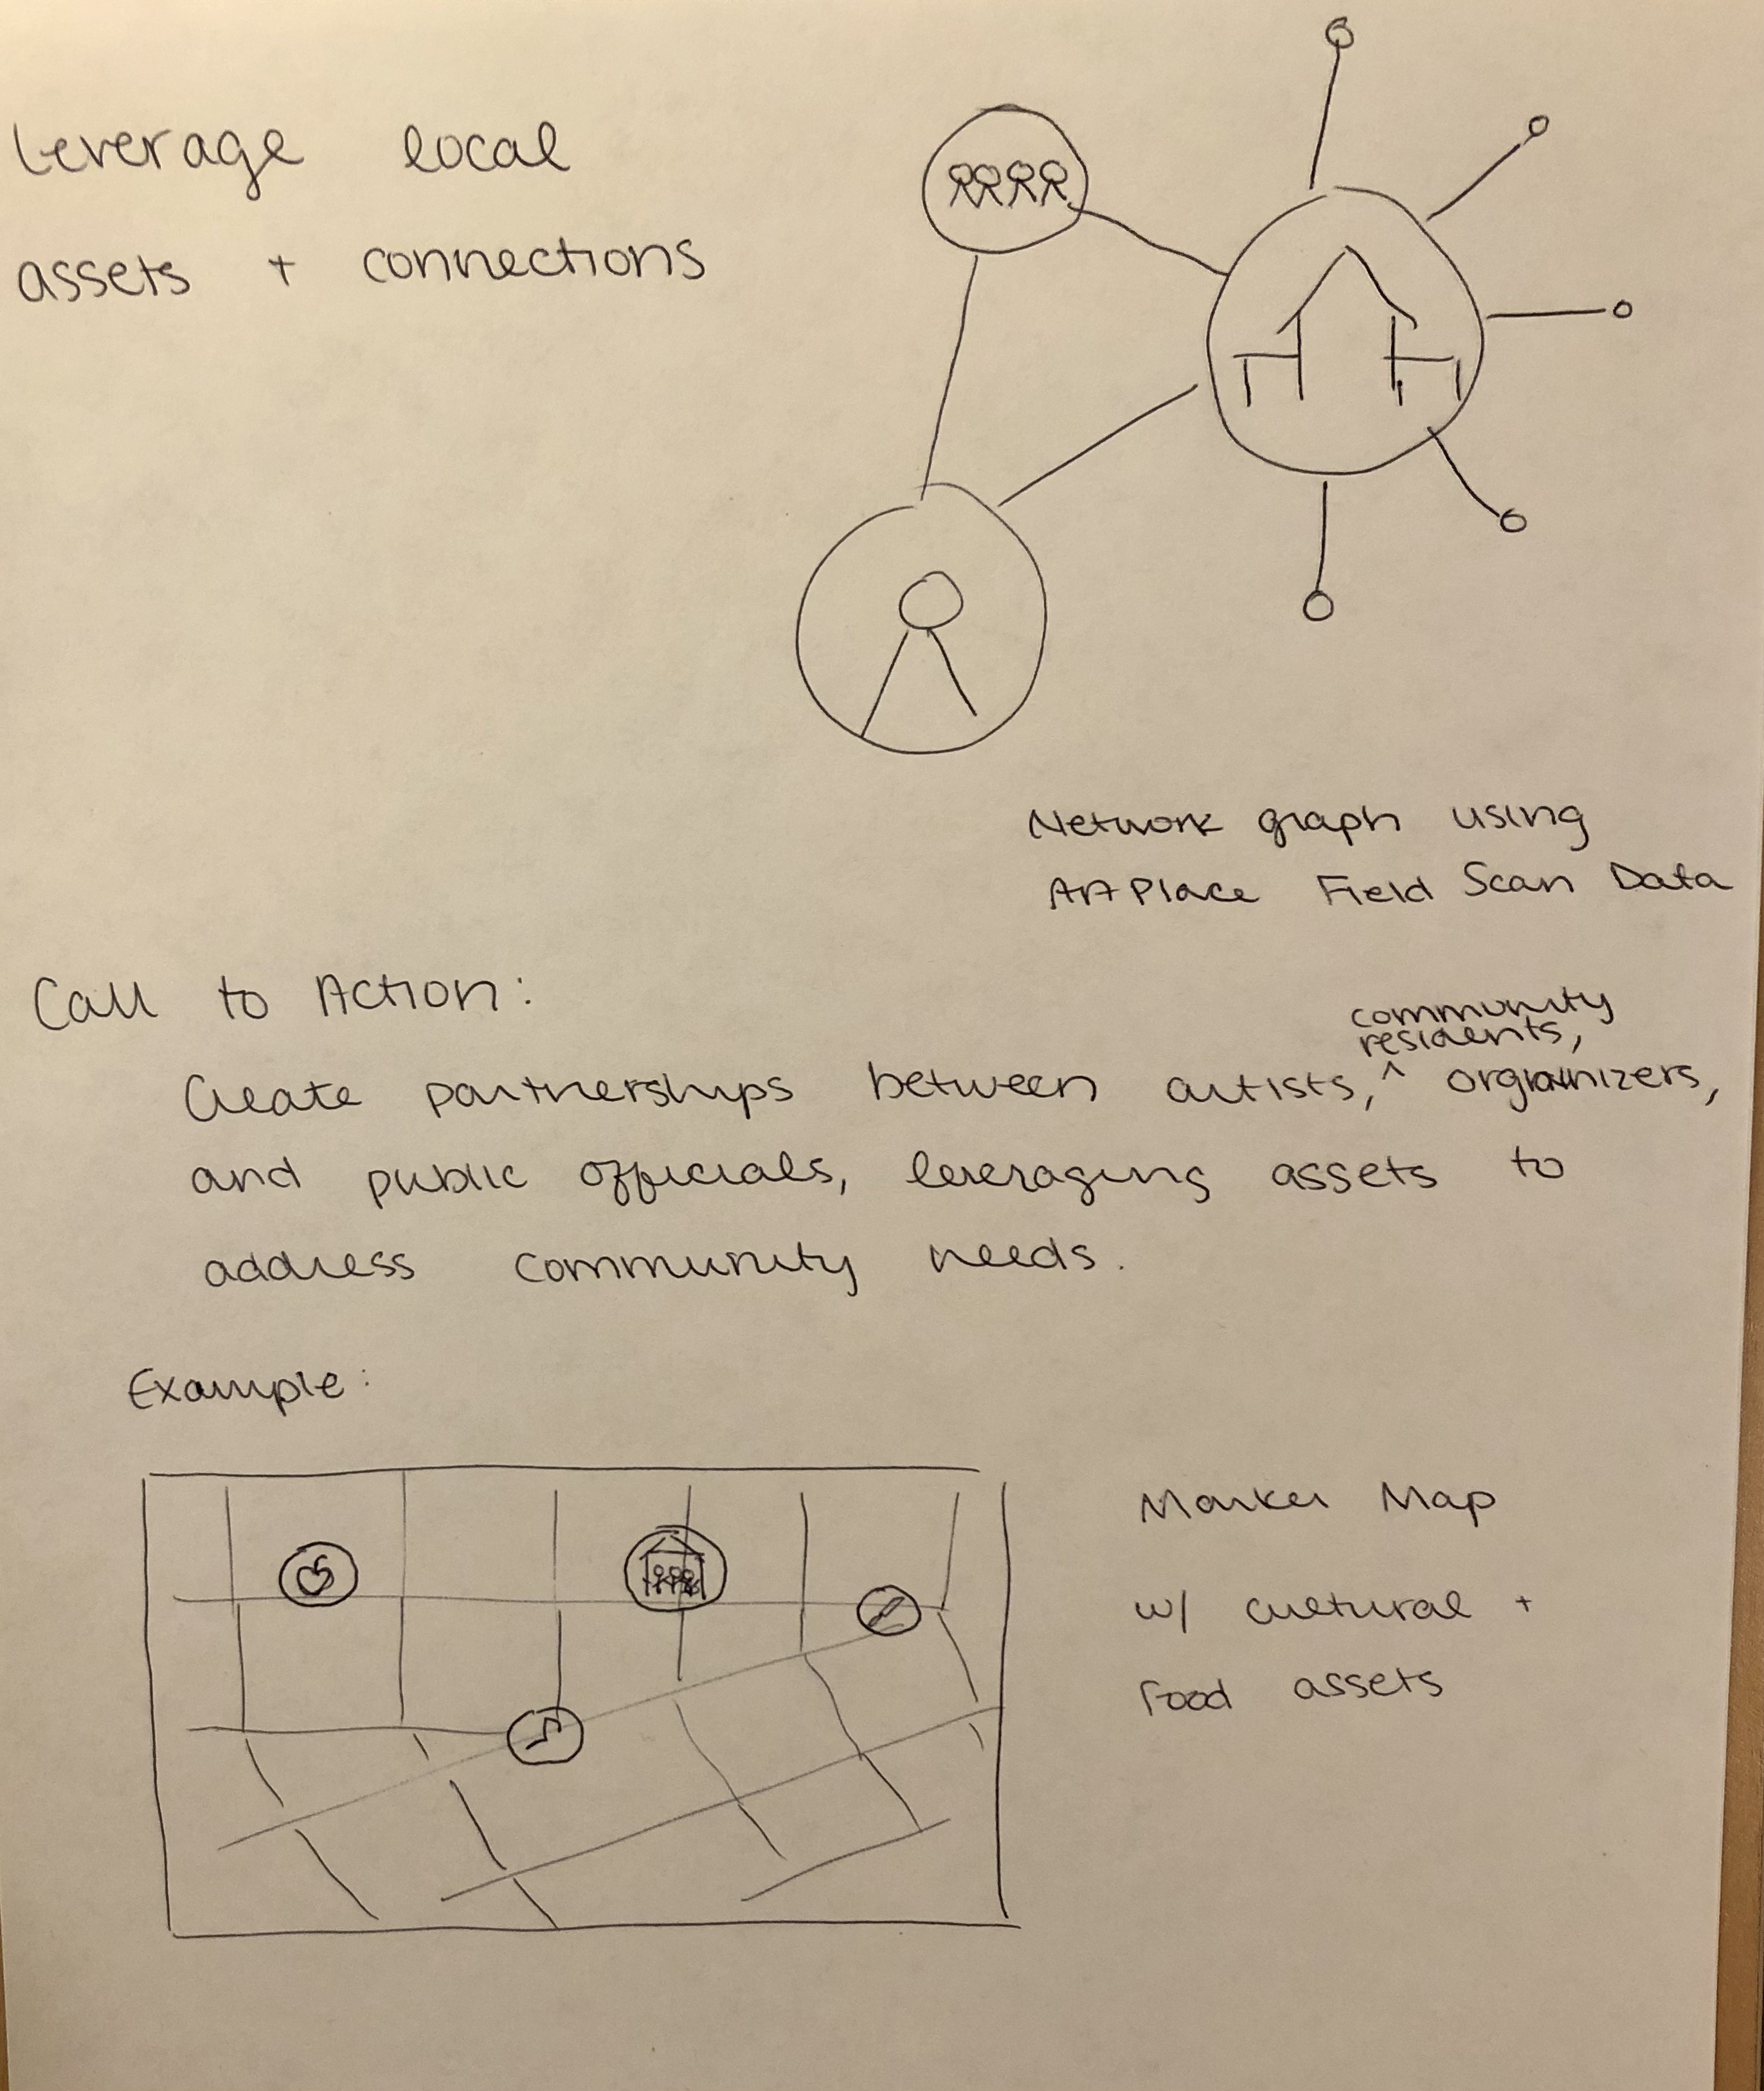 Leverage local
assets + connections
Network graph using
ArtPlace Field Scan Data
Call to Action:
community
residents,
Create partnerships between artists, ^ organizers,
and public officials, leveraging assets to
address community needs.
Example:
Marker Map
w/ cultural +
food assets